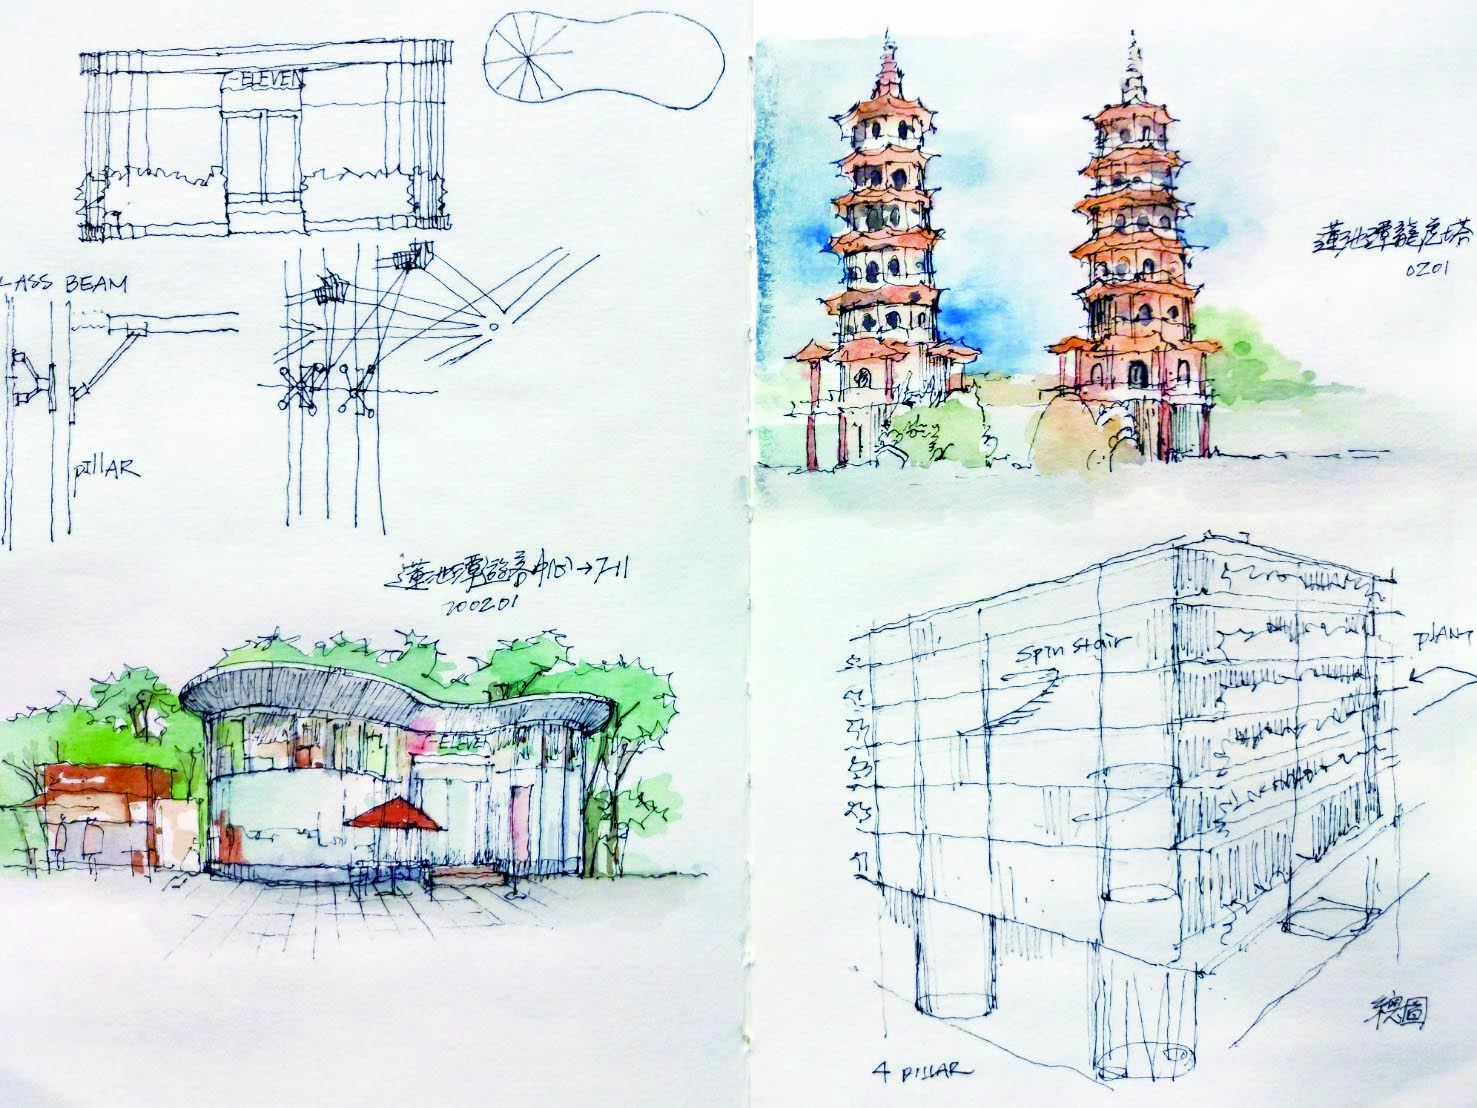 -ELEVEN
LASS BEAM
pillAR
蓮池潭遊客中心→7-11
200201
-ELEVEN
蓮池潭龍虎塔
0201
spin stair
plANT
總圖
4 pillAR